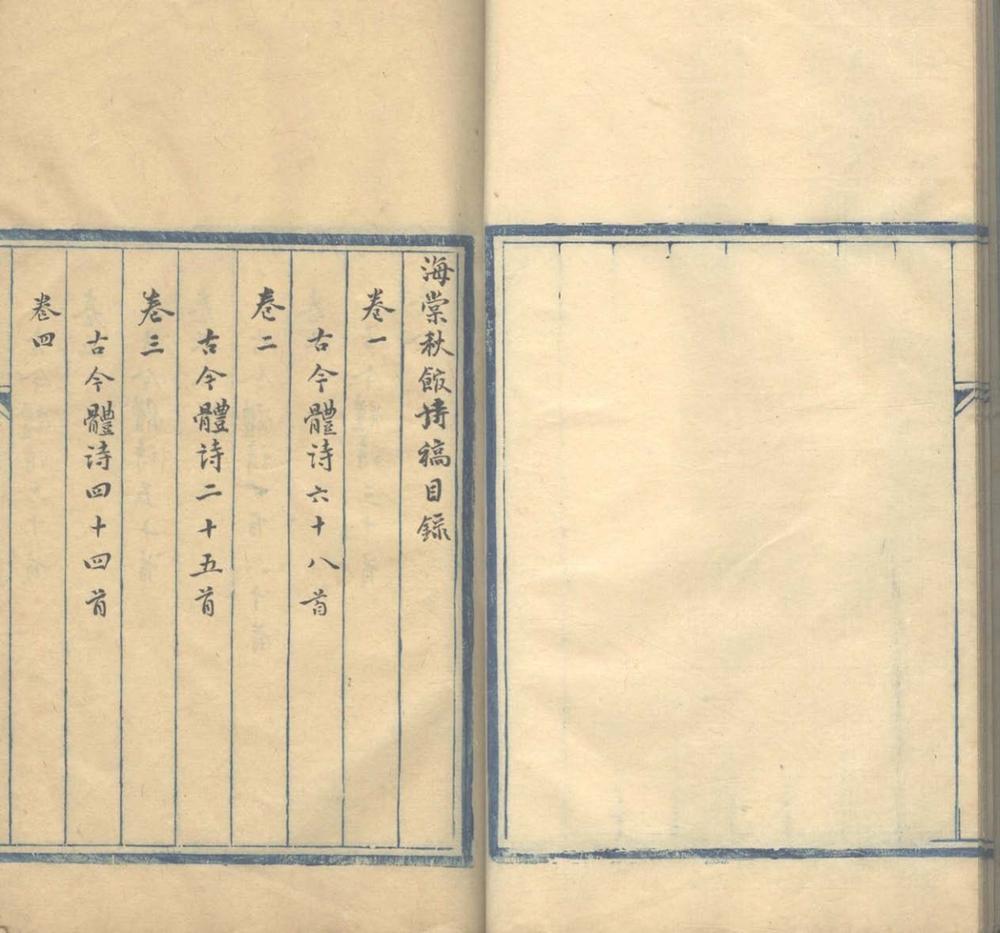 海棠秋館詩稿目錄
卷一
古今體詩六十八首
卷二
古今體詩二十五首
卷三
古今體詩四十四首
卷四